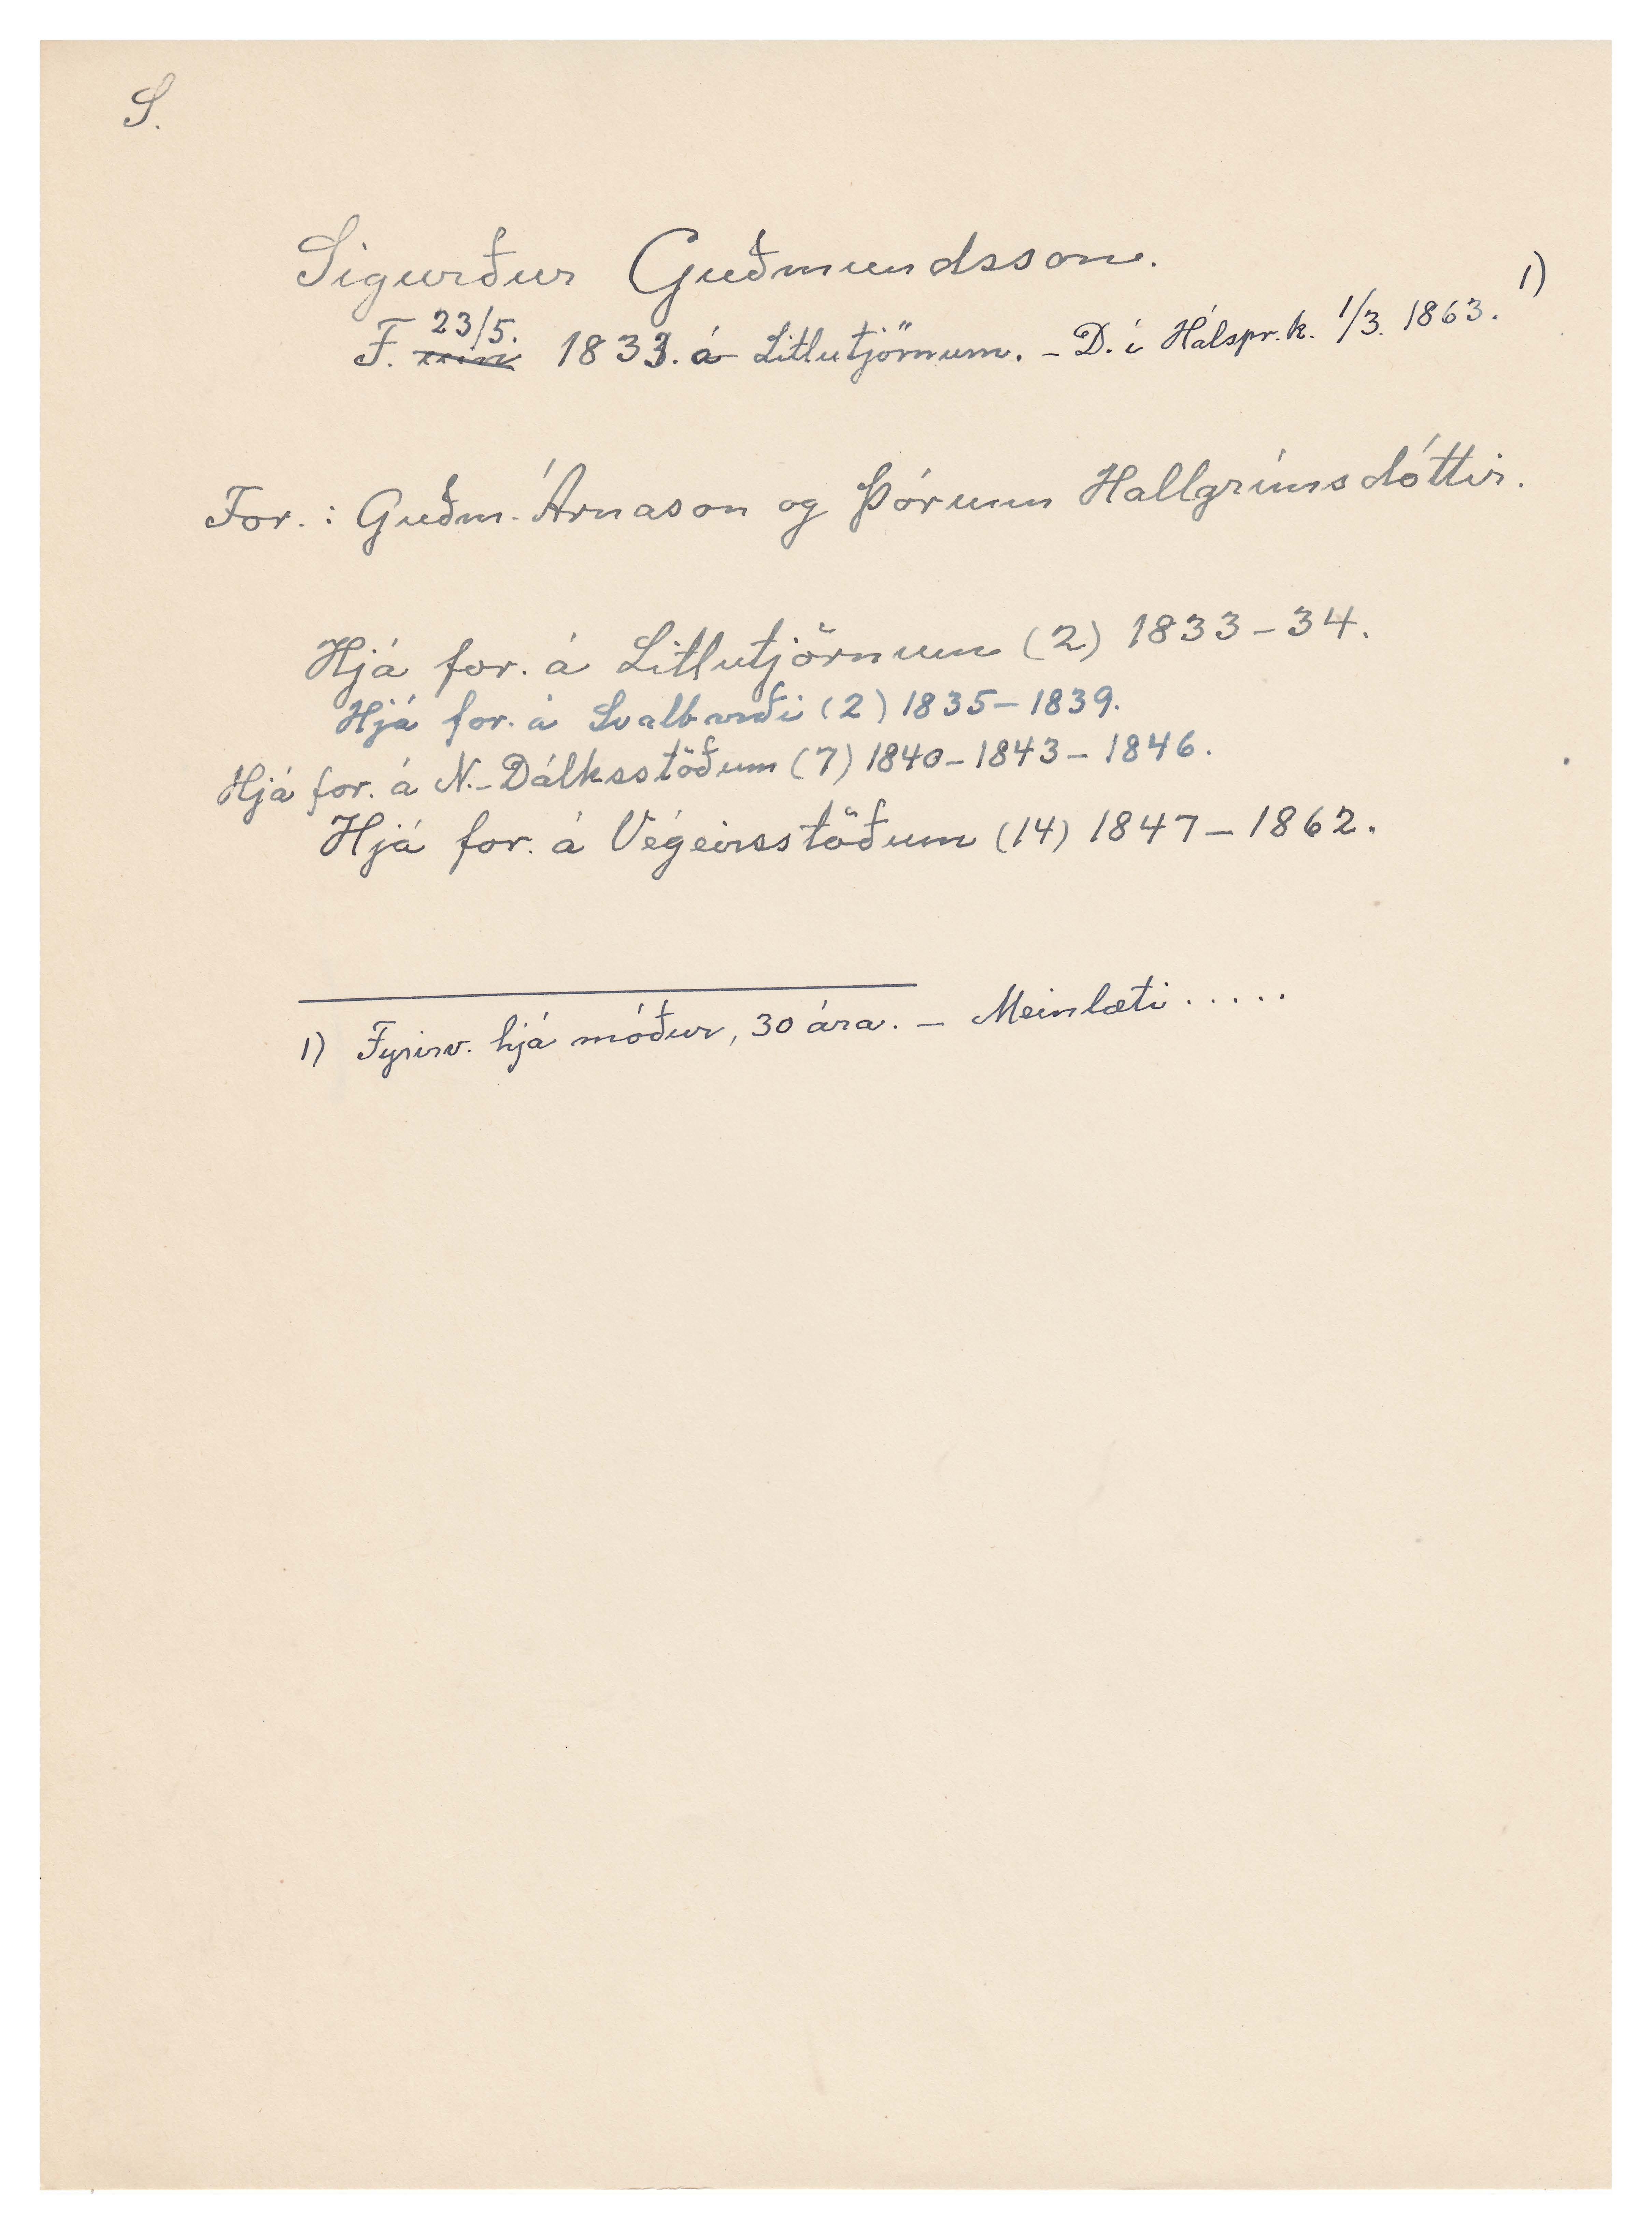 S.
Sigurður Guðmundsson.
F. 23/5. 1833. á Litlutjörnum. - D. í Hálspr.k. 1/3. 1863. 1)
For.: Guðm. Árnason og Þórunn Hallgrímsdóttir.
Hjá for. á Litlutjörnum (2) 1833-34.
Hjá for. á Svalbarði (2) 1835-1839.
Hjá for. á N.-Dálksstöðum (7) 1840-1843-1846.
Hjá for. á Végeirsstöðum (14) 1847-1862.
1) Fyrirv. hjá móður, 30 ára. - Meinlæti.....